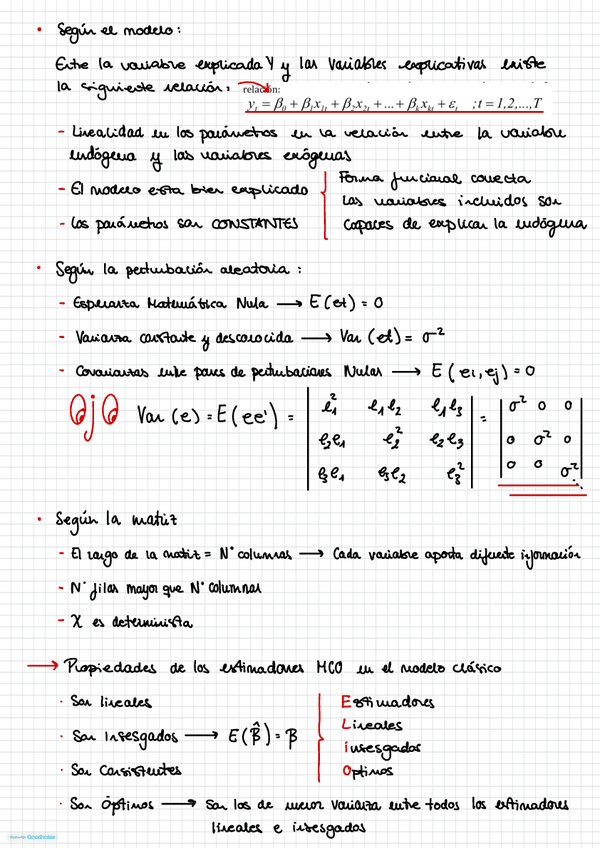 • Según el modelo:
Entre la variable explicada Y y las variables explicativas existe
la siguiente relación: relación:
y_t = β_0 + β_1x_1t + β_2x_2t + ... + β_kx_kt + ε_t ; t = 1,2,...,T
- Linealidad en los parámetros en la relación entre la variable
endógena y las variables exógenas
- El modelo esta bien explicado
Forma funcional correcta
Las variables incluidas son
capaces de explicar la endógena
- Los parámetros son CONSTANTES
• Según la perturbación aleatoria:
- Esperanza Matemática Nula → E(et) = 0
- Varianza constante y desconocida → Var (et) = σ²
- Covarianzas entre pares de perturbaciones Nulas → E (ei, ej) = 0
Ojo Var (e) = E(ee') =
e₁² e₁e₂ e₁e₃ = σ² 0 0
e₂e₁ e₂² e₂e₃ 0 σ² 0
e₃e₁ e₃e₂ e₃² 0 0 σ²
• Según la matriz
- El rango de la matriz = N° columnas → Cada variable aporta diferente información
- N° filas mayor que N° columnas
- X es determinista
→ Propiedades de los estimadores MCO en el modelo clásico
· Son lineales
· Son Insesgados → E(β̂) = β
· Son Consistentes
Estimadores
Lineales
insesgados
Optimos
· Son Óptimos → Son los de menor varianza entre todos los estimadores
lineales e insesgados
Goodnotes